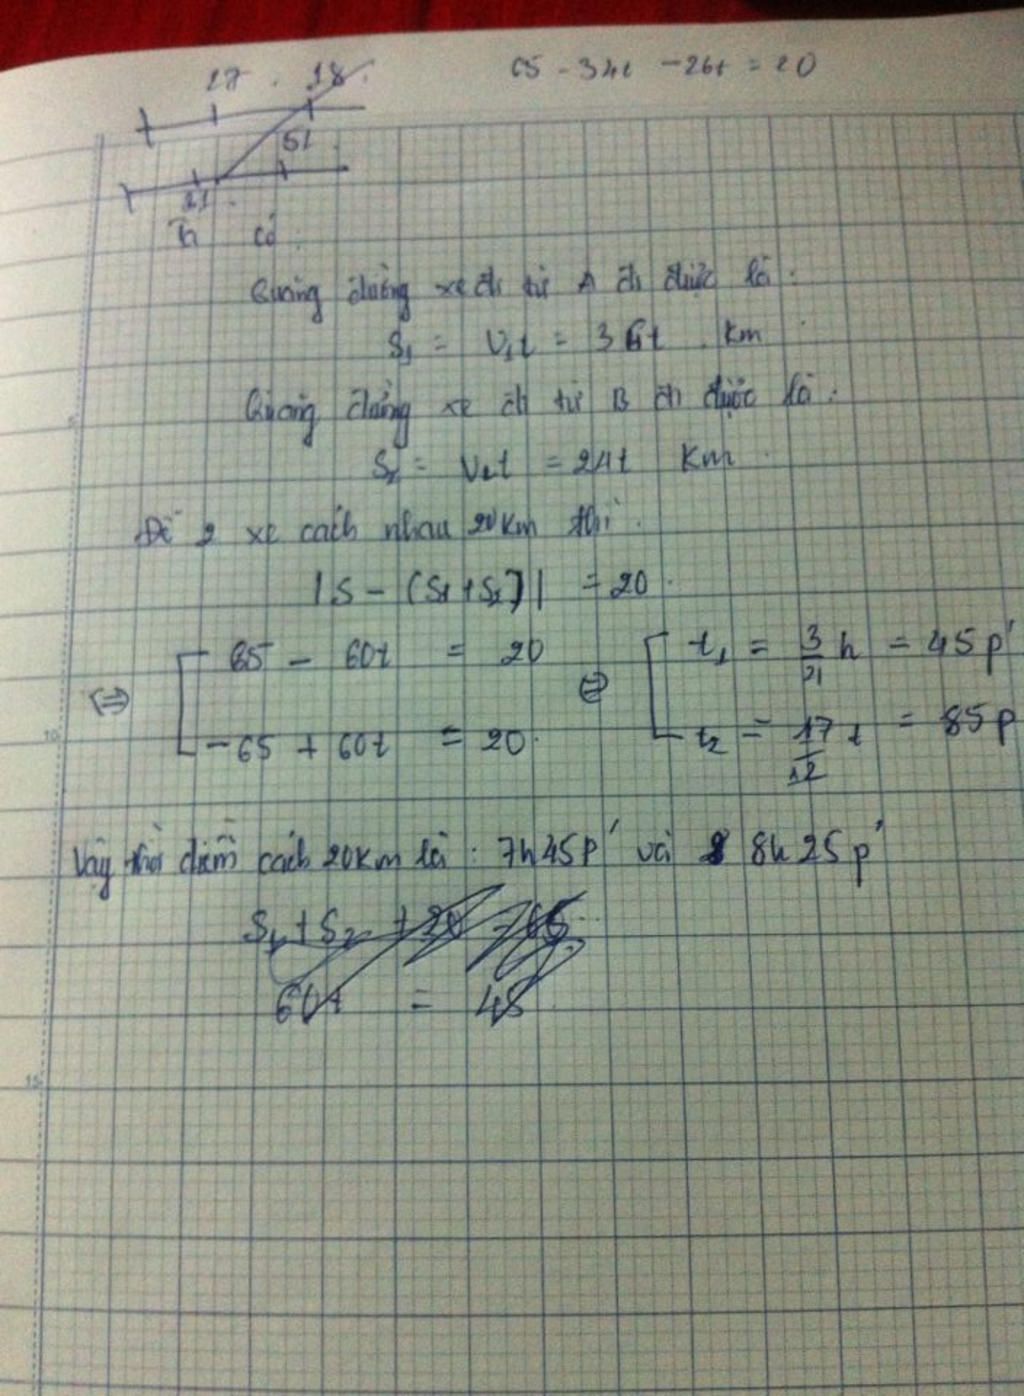 27 . 18.
65 - 34t - 26t = 20
51
21.
Ta có:
Quãng đường xe đi từ A đi được là:
S₁ = V₁t = 36t . km
Quãng đường xe đi từ B đi được là:
S₂ = V₂t = 24t km
Để 2 xe cách nhau 20km thì:
|S - (S₁+S₂)| = 20.
65 - 60t = 20
⇔
-65 + 60t = 20.
⇔
t₁ = 3/4 h = 45p'
t₂ = 17/12 t = 85p
Vậy thời điểm cách 20km là: 7h45p' và 8 8h25p'
S₁ + S₂ + 20 = 65
60t = 45